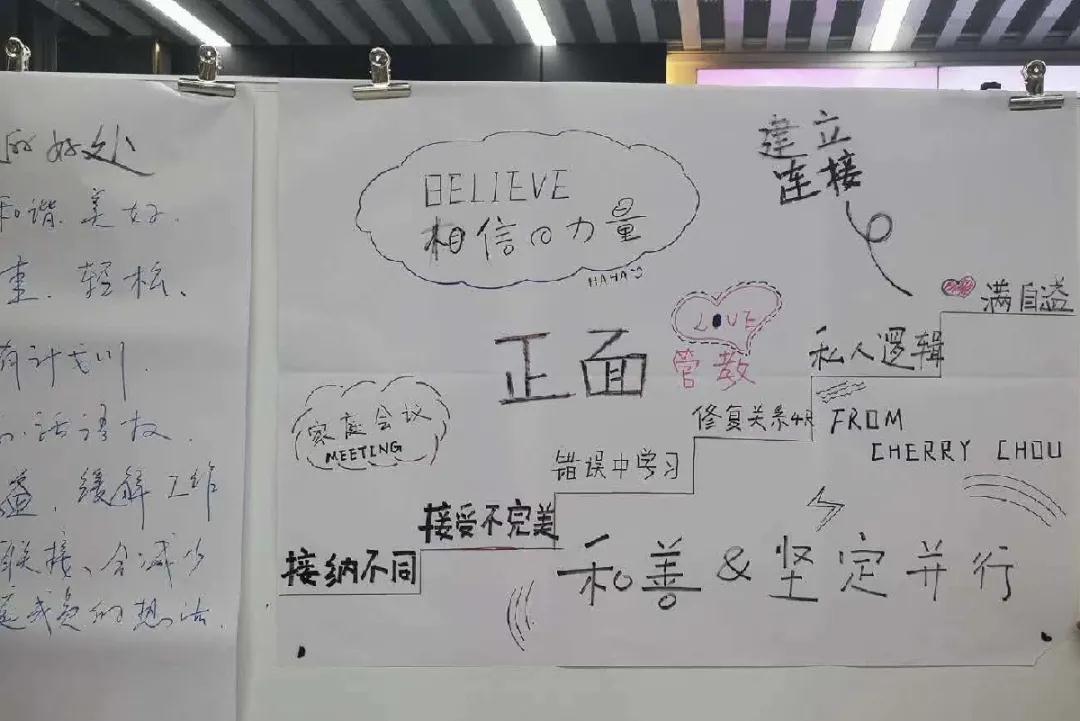 的好处
和谐、美好.
重、轻松、
有计划
话语权、
缓解工作
联接、会减少
庭成员的想法.
BELIEVE
相信の力量
HAHA
建立
连接
LOVE
正面
管教
家庭会议
MEETING
满自溢
私人逻辑
修复关系4R
错误中学习
接受不完美
接纳不同
FROM
CHERRY CHOU
和善&坚定并行